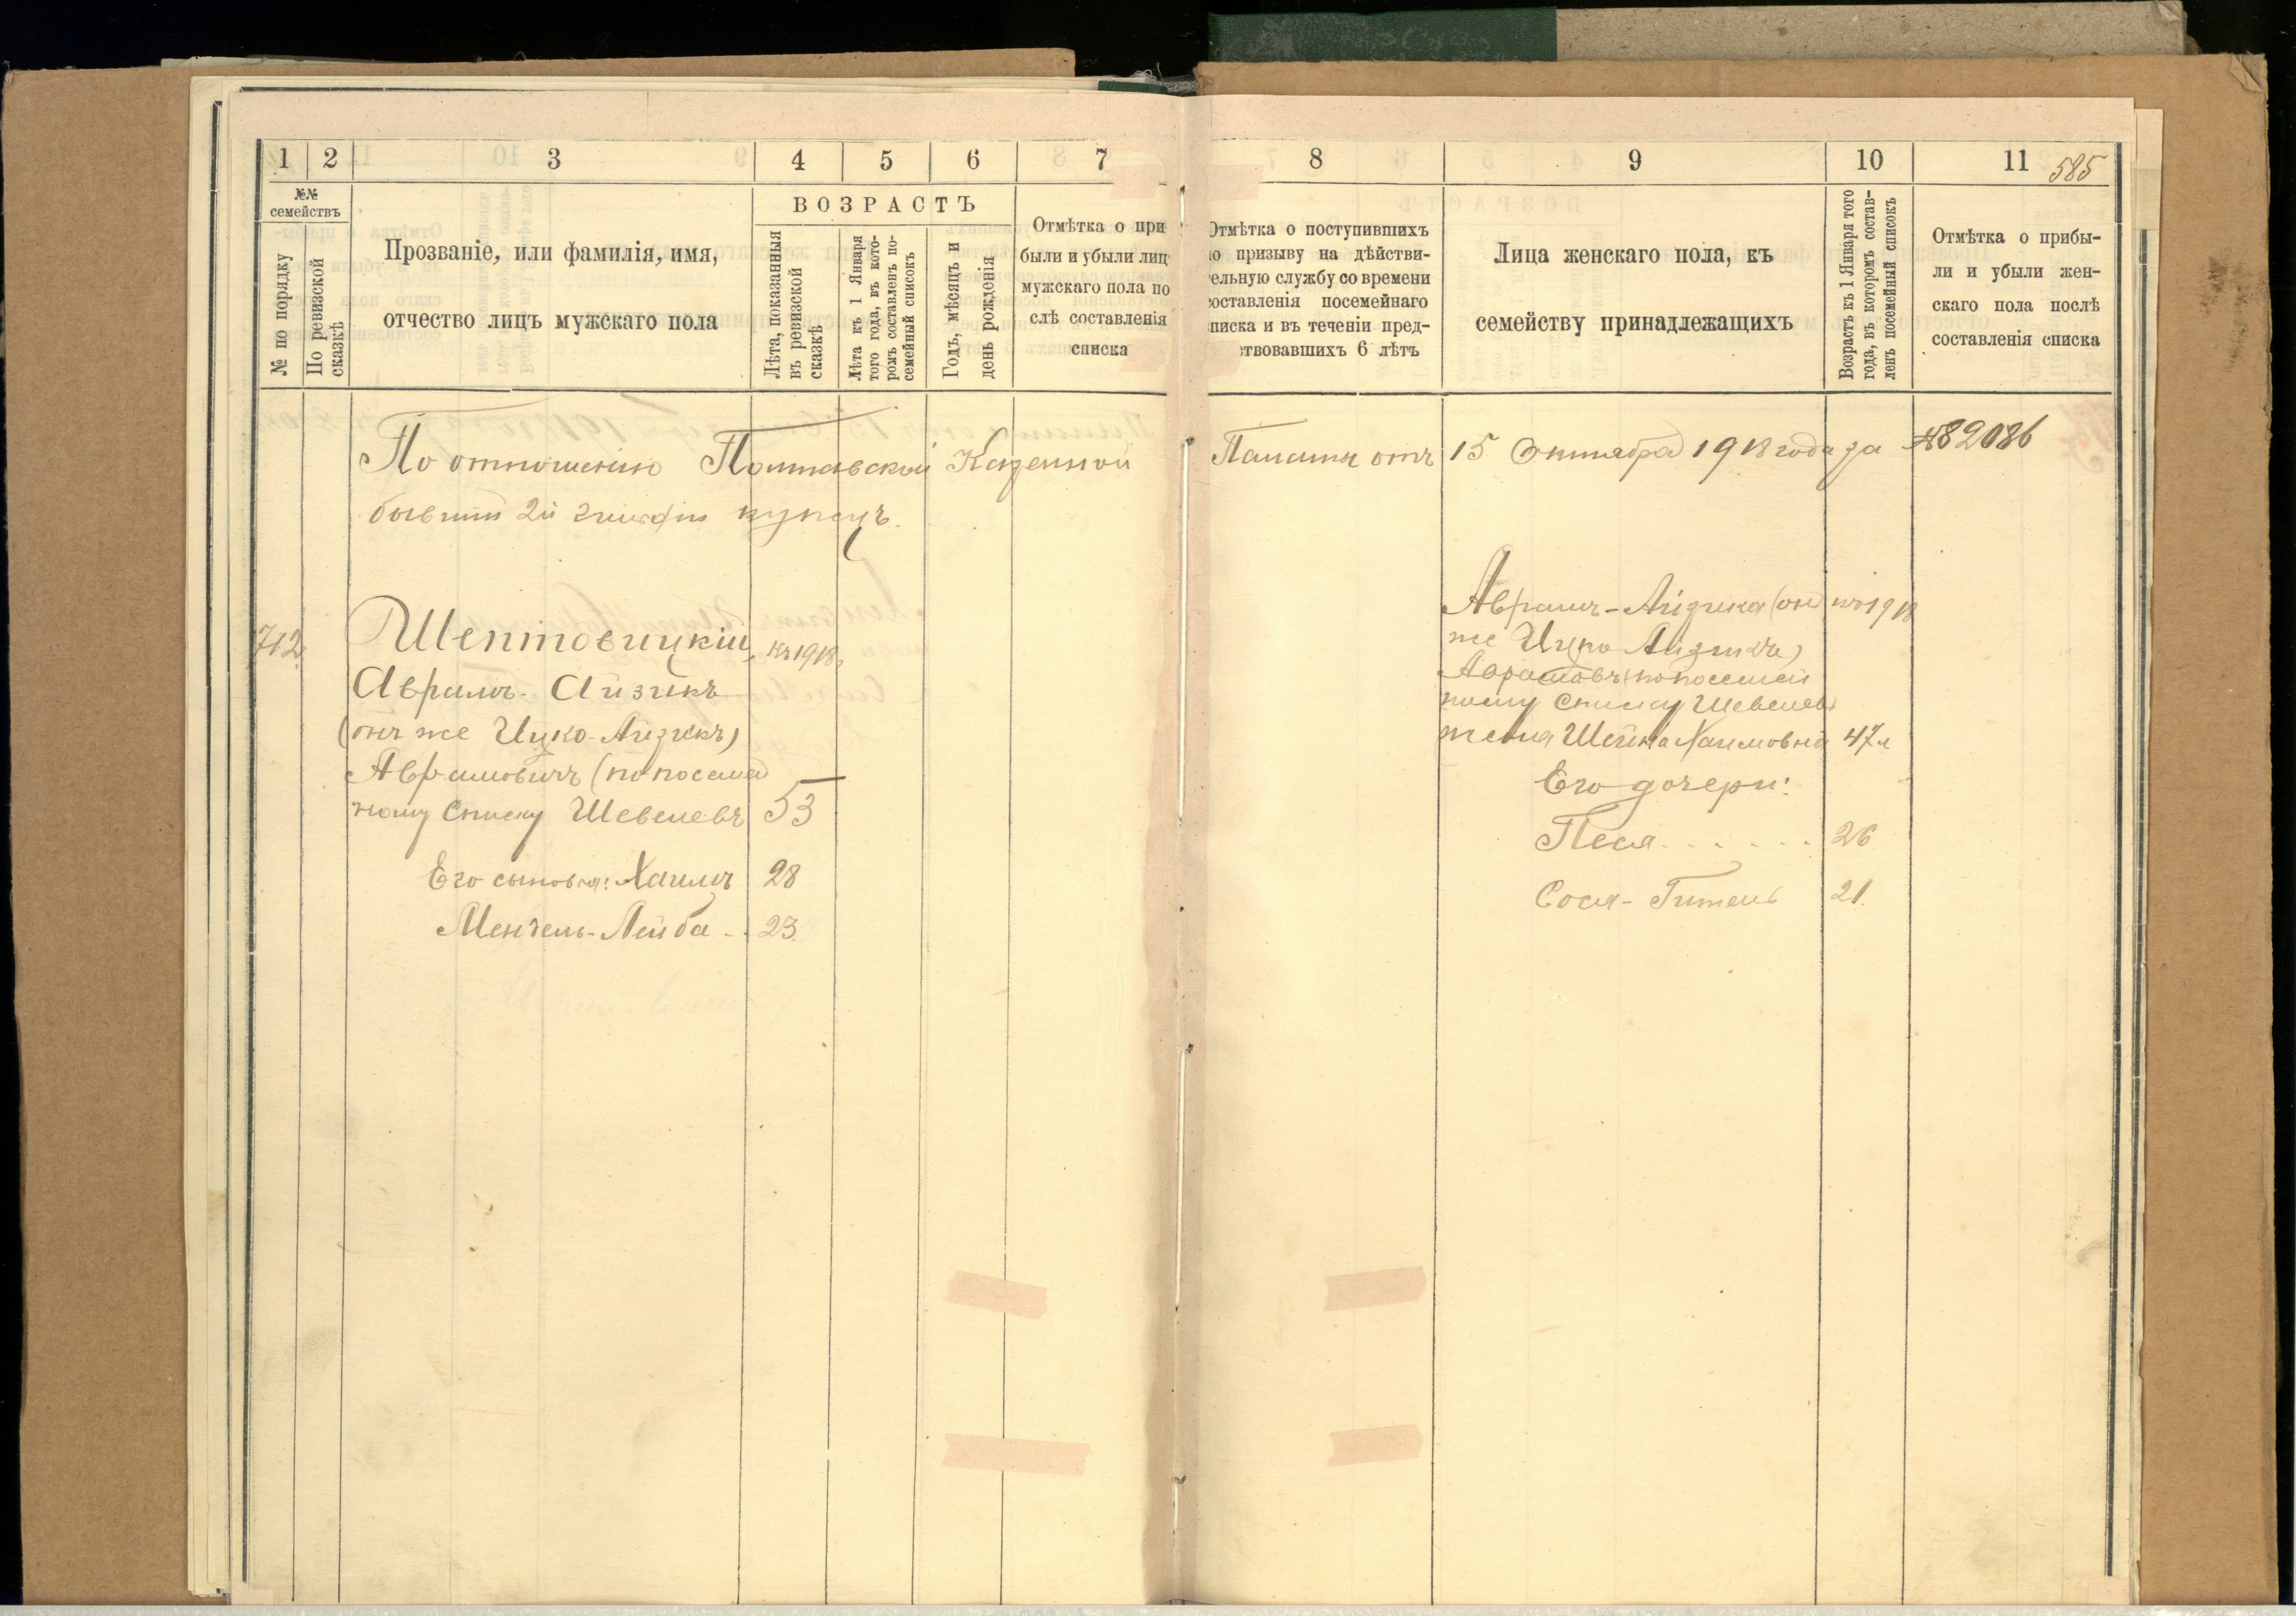 1 2 3 4 5 6 7
№№ семействъ
№ по порядку
По ревизской сказкѣ
Прозваніе, или фамилія, имя,
отчество лицъ мужскаго пола
ВОЗРАСТЪ
Лѣта, показанныя
въ ревизской
сказкѣ
Лѣта къ 1 Января
того года, въ кото-
ромъ составленъ по-
семейный списокъ
Годъ, мѣсяцъ и
день рожденія
Отмѣтка о при
были и убыли лиц
мужскаго пола по
слѣ составленія
списка
8 9 10 11 585
Отмѣтка о поступившихъ
по призыву на дѣйстви-
тельную службу со времени
составленія посемейнаго
списка и въ теченіи пред-
ствовавшихъ 6 лѣтъ
Лица женскаго пола, къ
семейству принадлежащихъ
Возрастъ къ 1 Января того
года, въ которомъ состав-
ленъ посемейный списокъ
Отмѣтка о прибы-
ли и убыли жен-
скаго пола послѣ
составленія списка
По отношенію Полтавской Казенной Палаты отъ 15 Октября 1918 года за №82086
бывшій 2й гильдіи купецъ.
712 Шептовицкій, къ 1918г
Аврамъ-Айзикъ
(онъ же Ицко-Айзикъ)
Аврамовичъ (по посемей
ному списку Шевелевъ 53
Его сыновья: Хаимъ 28
Мендель-Лейба 23.
Аврамъ-Айзика (он къ 1918
же Ицко Айзикъ)
Аврамовъ (по посемей
ному списку Шевелевъ)
жена Шейна Хаимовна 47л
Его дочери:
Песя 26
Сося-Гитель 21.